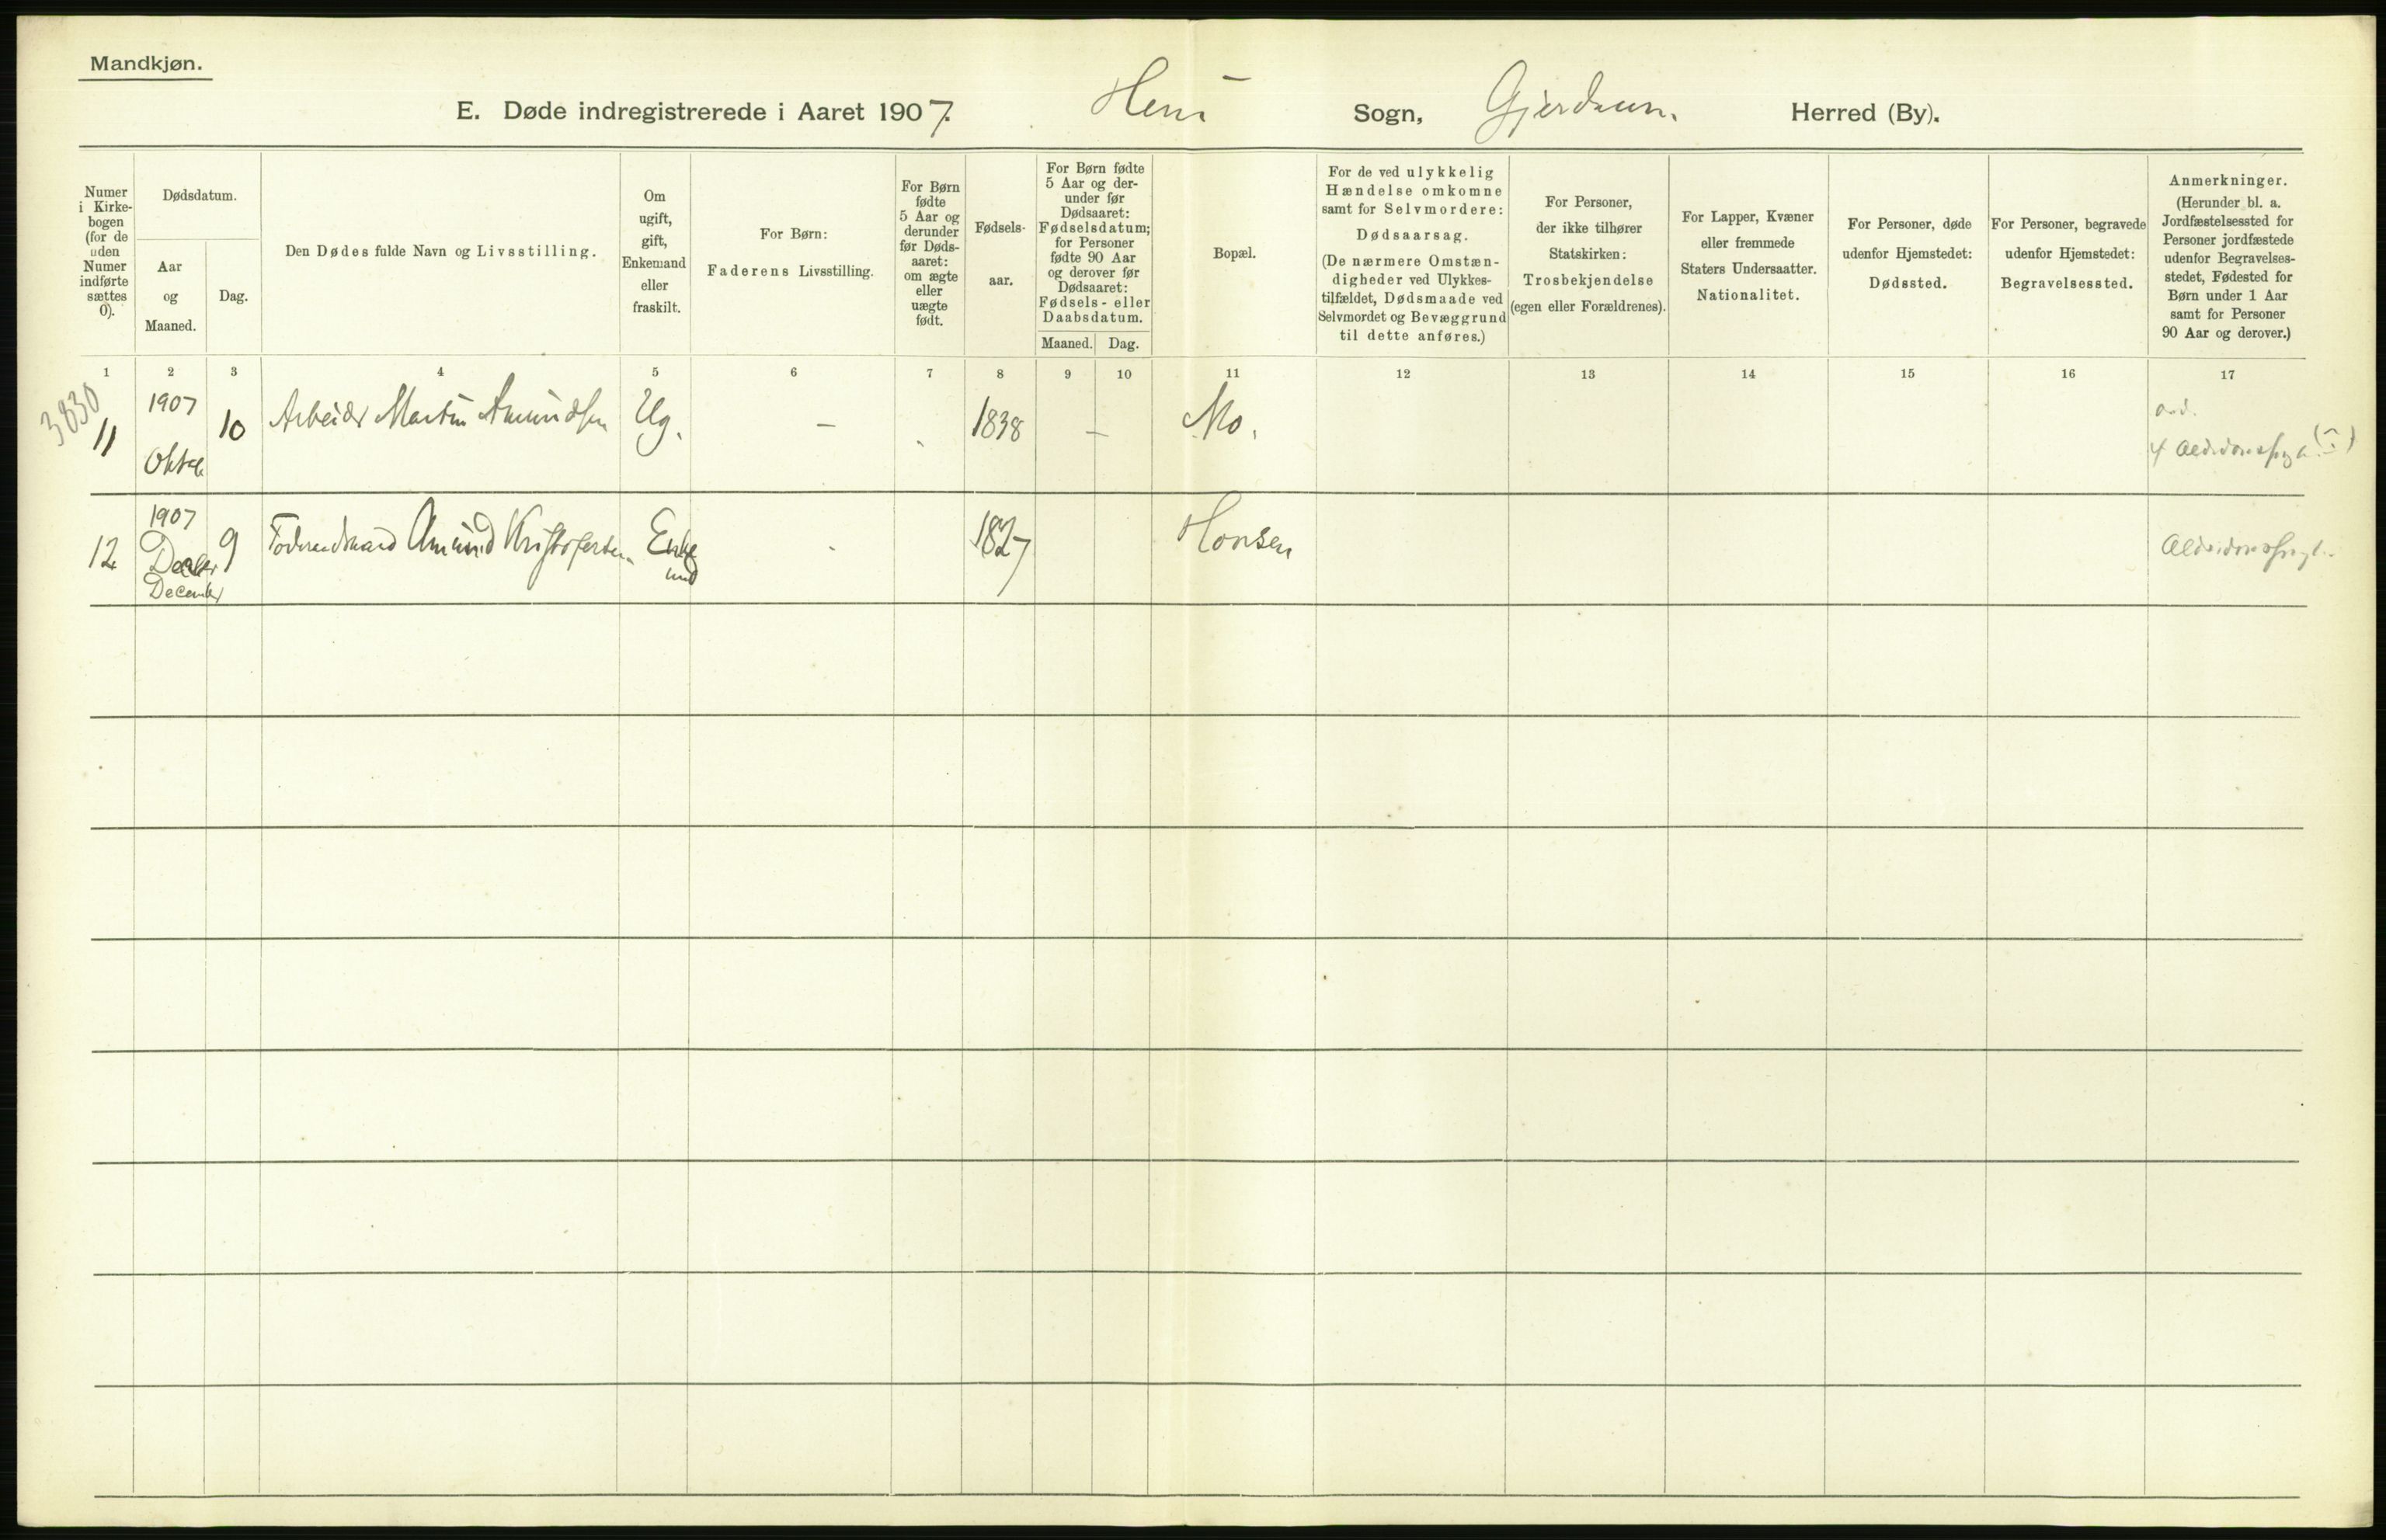 Mandkjøn.
E. Døde indregistrerede i Aaret 1907. Heni Sogn, Gjerdrum. Herred (By).
Numer i Kirke-
bogen
(for de
uden
Numer
indførte
sættes
0).
Dødsdatum.
Aar
og
Maaned.
Dag.
Den Dødes fulde Navn og Livsstilling.
Om
ugift,
gift,
Enkemand
eller
fraskilt.
For Børn:
Faderens Livsstilling.
For Børn
fødte
5 Aar og
derunder
før Døds-
aaret:
om ægte
eller
uægte
født.
Fødsels-
aar.
For Børn fødte
5 Aar og der-
under før
Dødsaaret:
Fødselsdatum;
for Personer
fødte 90 Aar
og derover før
Dødsaaret:
Fødsels- eller
Daabsdatum.
Maaned. Dag.
Bopæl.
For de ved ulykkelig
Hændelse omkomne
samt for Selvmordere:
Dødsaarsag.
(De nærmere Omstæn-
digheder ved Ulykkes-
tilfældet, Dødsmaade ved
Selvmordet og Bevæggrund
til dette anføres.)
For Personer,
der ikke tilhører
Statskirken:
Trosbekjendelse
(egen eller Forældrenes).
For Lapper, Kvæner
eller fremmede
Staters Undersaatter.
Nationalitet.
For Personer, døde
udenfor Hjemstedet:
Dødssted.
For Personer, begravede
udenfor Hjemstedet:
Begravelsessted.
Anmerkninger.
(Herunder bl. a.
Jordfæstelsessted for
Personer jordfæstede
udenfor Begravelses-
stedet, Fødested for
Børn under 1 Aar
samt for Personer
90 Aar og derover.)
1 2 3 4 5 6 7 8 9 10 11 12 13 14 15 16 17
3830
11 1907 Oktob 10 Arbeider Martin Amundsen Ug. - 1838 - Mo.
12 1907 December 9 Føderaadsmand Amund Kristofersen Enke
md 1827 Honsen